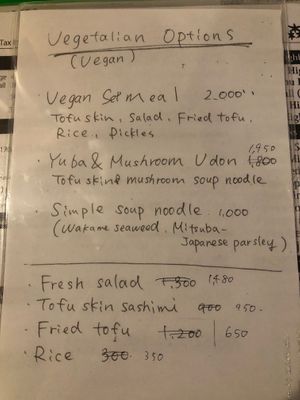 Vegetalian Options
(Vegan)
· Vegan Set meal 2.000
Tofu skin, Salad, Fried tofu,
Rice, Pickles
1,950
· Yuba & Mushroom Udon 1,800
Tofu skin & mushroom soup noodle
· Simple soup noodle. 1,000
(Wakame seaweed, Mitsuba-
Japanese parsley)
· Fresh salad 1,300 1,480
· Tofu skin sashimi 900 950.
· Fried tofu 1,200 | 650
· Rice 300. 350
Tax